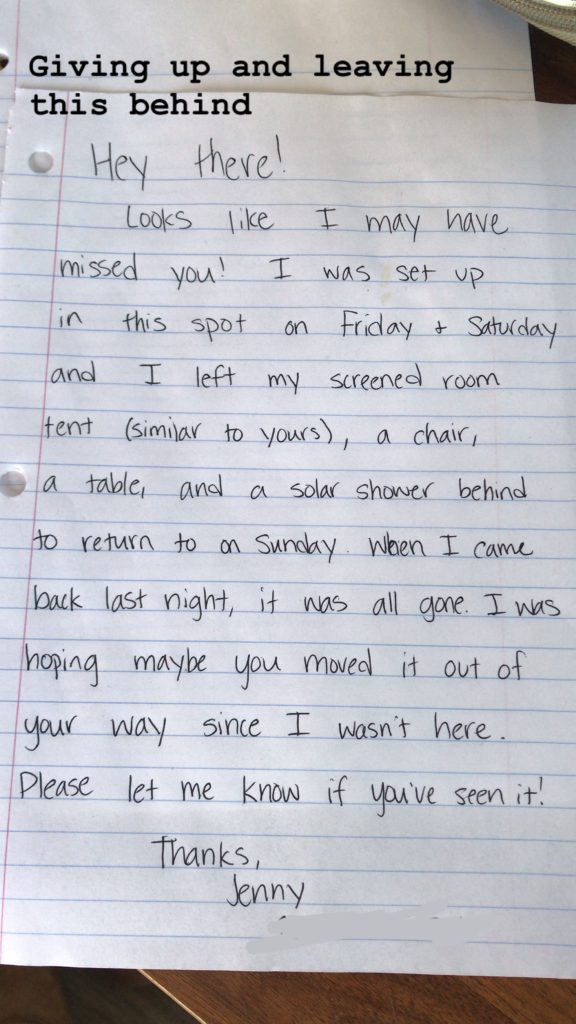 Giving up and leaving
this behind
Hey there!
Looks like I may have
missed you! I was set up
in this spot on Friday + Saturday
and I left my screened room
tent (similar to yours), a chair,
a table, and a solar shower behind
to return to on Sunday. When I came
back last night, it was all gone. I was
hoping maybe you moved it out of
your way since I wasn't here.
Please let me know if you've seen it!
Thanks,
Jenny